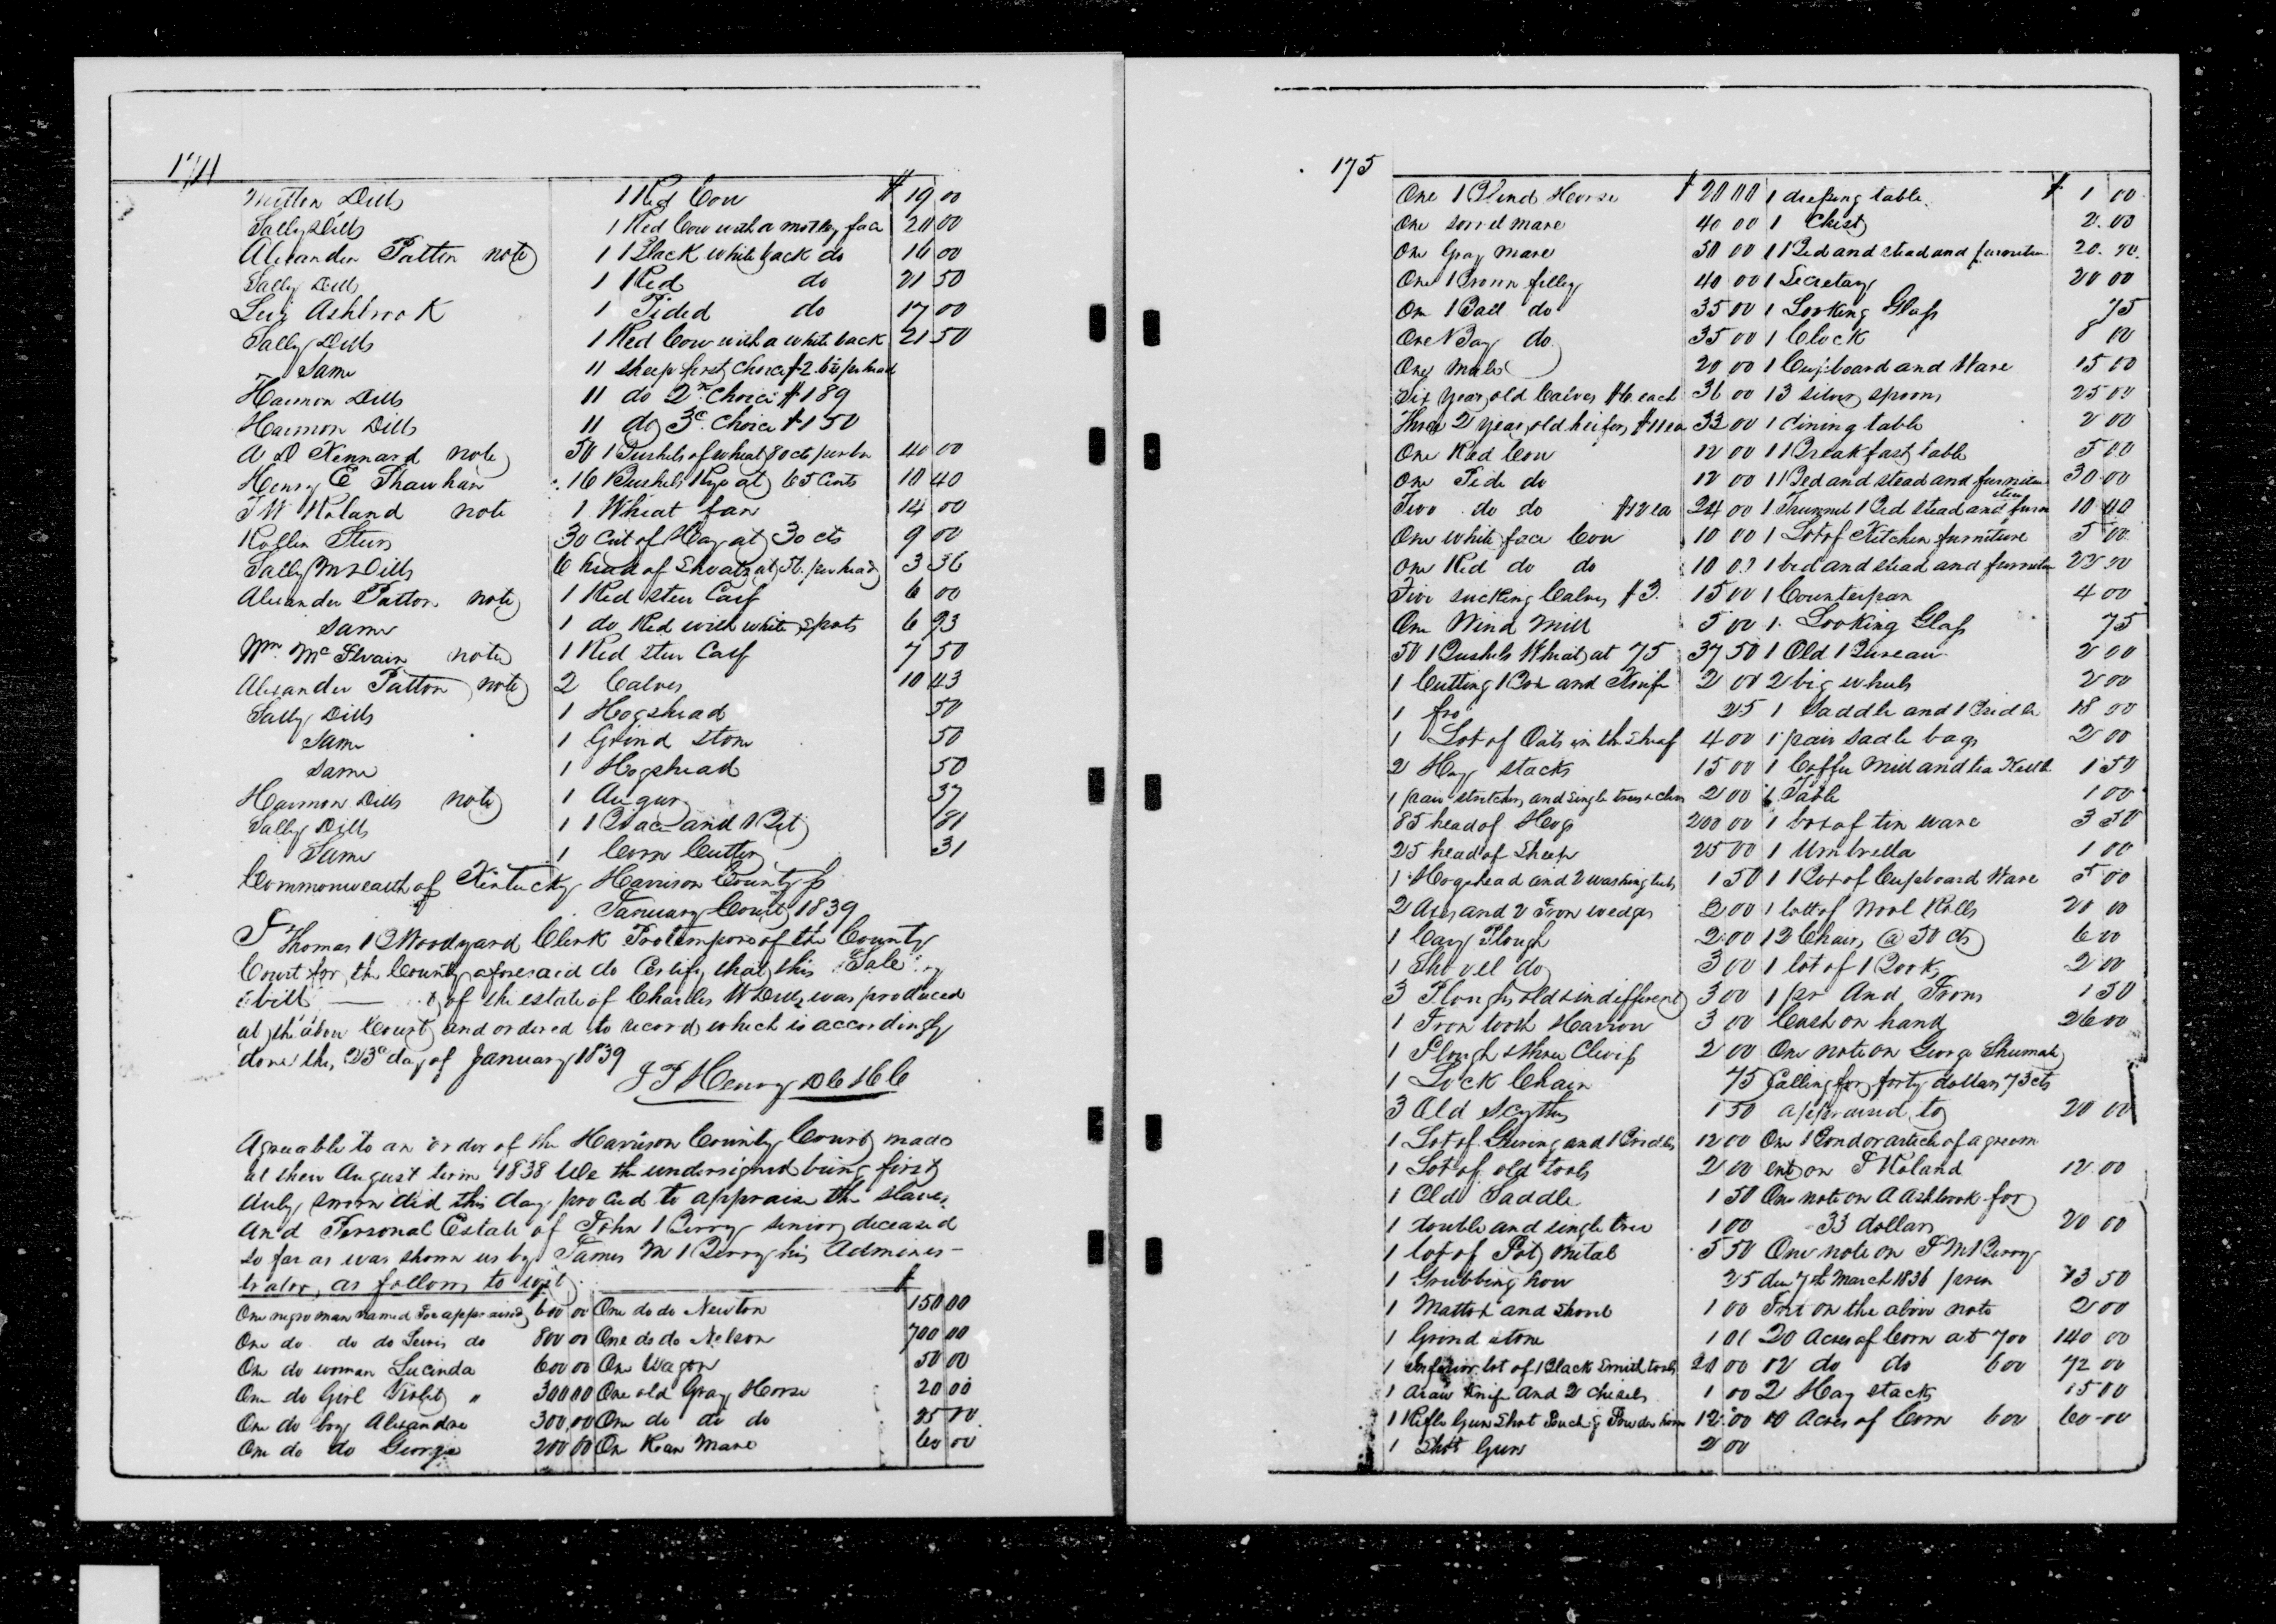 174
Milton Dills 1 Red Cow $ 19 00
Sally Dills 1 Red Cow with a motley face 20 00
Alexander Patton note 1 Black white back do 16 00
Sally Dills 1 Red do 21 50
Levi Ashbrook 1 Pided do 17 00
Sally Dills 1 Red Cow with a white back 21 50
Same 11 sheep first choice $2. per head
Harmon Dills 11 do 2nd choice $1 89
Harmon Dills 11 do 3d choice $1 50
A D Kennard note 50 Bushels of wheat 80 cts per bu 40 00
Henry E Shawhan 16 Bushels Rye at 65 Cents 10 40
J W Roland note 1 Wheat fan 14 00
Rollin Steers 30 Cut of Hay at 30 cts 9 00
Sally M Dills 6 head of Shoats at 56. per head 3 36
Alexander Patton note 1 Red steer Calf 6 00
Same 1 do Red with white spots 6 93
Wm McIlvain note 1 Red steer Calf 7 50
Alexander Patton note 2 Calves 10 43
Sally Dills 1 Hogshead 50
Same 1 Grind stone 50
Same 1 Hogshead 50
Harmon Dills note 1 Augur 37
Sally Dills 1 Brace and Bit 81
Same 1 Corn Cutter 31
Commonwealth of Kentucky Harrison County ss
January Court 1839
I Thomas B Woodyard Clerk Protempore of the County
Court for the County aforesaid do Certify that this Sale
bill of the estate of Charles W Dills was produced
at the above Court and ordered to record which is accordingly
done this 23d day of January 1839
J T Henry D C H C C
Agreeable to an order of the Harrison County Court made
at their August term 1838 We the undersigned being first
duly sworn did this day proceed to appraise the slaves
and Personal Estate of John Berry senior deceased
so far as was shown us by James M Berry his Adminis-
trator, as follows to wit $
One negro man named Joe appraised 600 00 One do do Newton 150 00
One do do do Lewis do 800 00 One do do Nelson 700 00
One do woman Lucinda 600 00 One Wagon 50 00
One do Girl Violet " 300 00 One old Gray Horse 20 00
One do boy Alexander 300 00 One do do do 25 00
One do do George 200 00 One Roan Mare 60 00
175
One Blind Horse $ 20 00 1 dressing table $ 1 00
One sorrel mare 40 00 1 Chest 2.00
One Gray mare 50 00 1 Bed and stead and furniture 20.00
One Brown filley 40 00 1 Secretary 20 00
One Ball do 35 00 1 Looking Glass 75
One Bay do 35 00 1 Clock 8 00
One Mule 20 00 1 Cupboard and Ware 15 00
Six year old Calves $6 each 36 00 13 silver spoons 25 00
Three 2 year old heifers $11 ea 33 00 1 dining table 2 00
One Red Cow 12 00 1 Breakfast table 5 00
One Pide do 12 00 1 Bed and stead and furniture 30 00
Two do do $12 ea 24 00 1 Trunnel Bed stead and furniture 10 00
One white face Cow 10 00 1 Lot of Kitchen furniture 5 00
One Red do do 10 00 1 bed and stead and furniture 25 00
Five sucking Calves $3. 15 00 1 Counterpan 4 00
One Wind Mill 5 00 1 Looking Glass 75
50 Bushels Wheat at 75 37 50 1 Old Bureau 2 00
1 Cutting Box and Knife 2 00 2 big wheels 2 00
1 fro 25 1 Saddle and Bridle 18 00
1 Lot of Oats in the sheaf 4 00 1 pair sadle bags 2 00
2 Hay stacks 15 00 1 Coffee Mill and tea Kettle 1 50
1 pair stretchers and single trees & clevis 2 00 1 Table 1 00
85 head of Hogs 200 00 1 box of tin ware 3 50
25 head of Sheep 25 00 1 Umbrella 1 00
1 Hogshead and 2 washing tubs 1 50 1 Box of Cupboard Ware 5 00
2 Axes and 2 Iron wedges 2 00 1 lott of Wool Rolls 20 00
1 Cary Plough 2 00 12 Chairs @ 50 cts 6 00
1 Shovel do 3 00 1 lot of Books 2 00
3 Ploughs old & indifferent 3 00 1 pr And Irons 1 50
1 Iron tooth Harrow 3 00 Cash on hand 26 00
1 Plough & three Clevis 2 00 One note on George Shumate
1 Lock Chain 75 Calling for forty dollars 73 cts
3 Old Scythes 1 50 appraised to 20 00
1 Lot of Gearing and Bridles 12 00 One Bond or article of agreem
1 Lot of old tools 2 00 ent on J Roland 12.00
1 Old Saddle 1 50 One note on A Ashbrook for
1 double and single tree 1 00 33 dollars 20 00
1 lot of Pot metal 5 50 One note on J M Berry
1 Grubbing how 25 due 7th March 1836 prin 73 50
1 Mattox and Shovel 1 00 Int on the above note 2 00
1 Grind stone 1 01 20 Acres of Corn at 7 00 140 00
1 Inferior lot of Black Smith tools 20 00 12 do do 6 00 72 00
1 draw Knife and 2 Chisels 1 00 2 Hay stacks 15 00
1 Rifle Gun Shot Pouch & Powder horn 12 00 10 Acres of Corn 6 00 60-00
1 Shot Gun 2 00